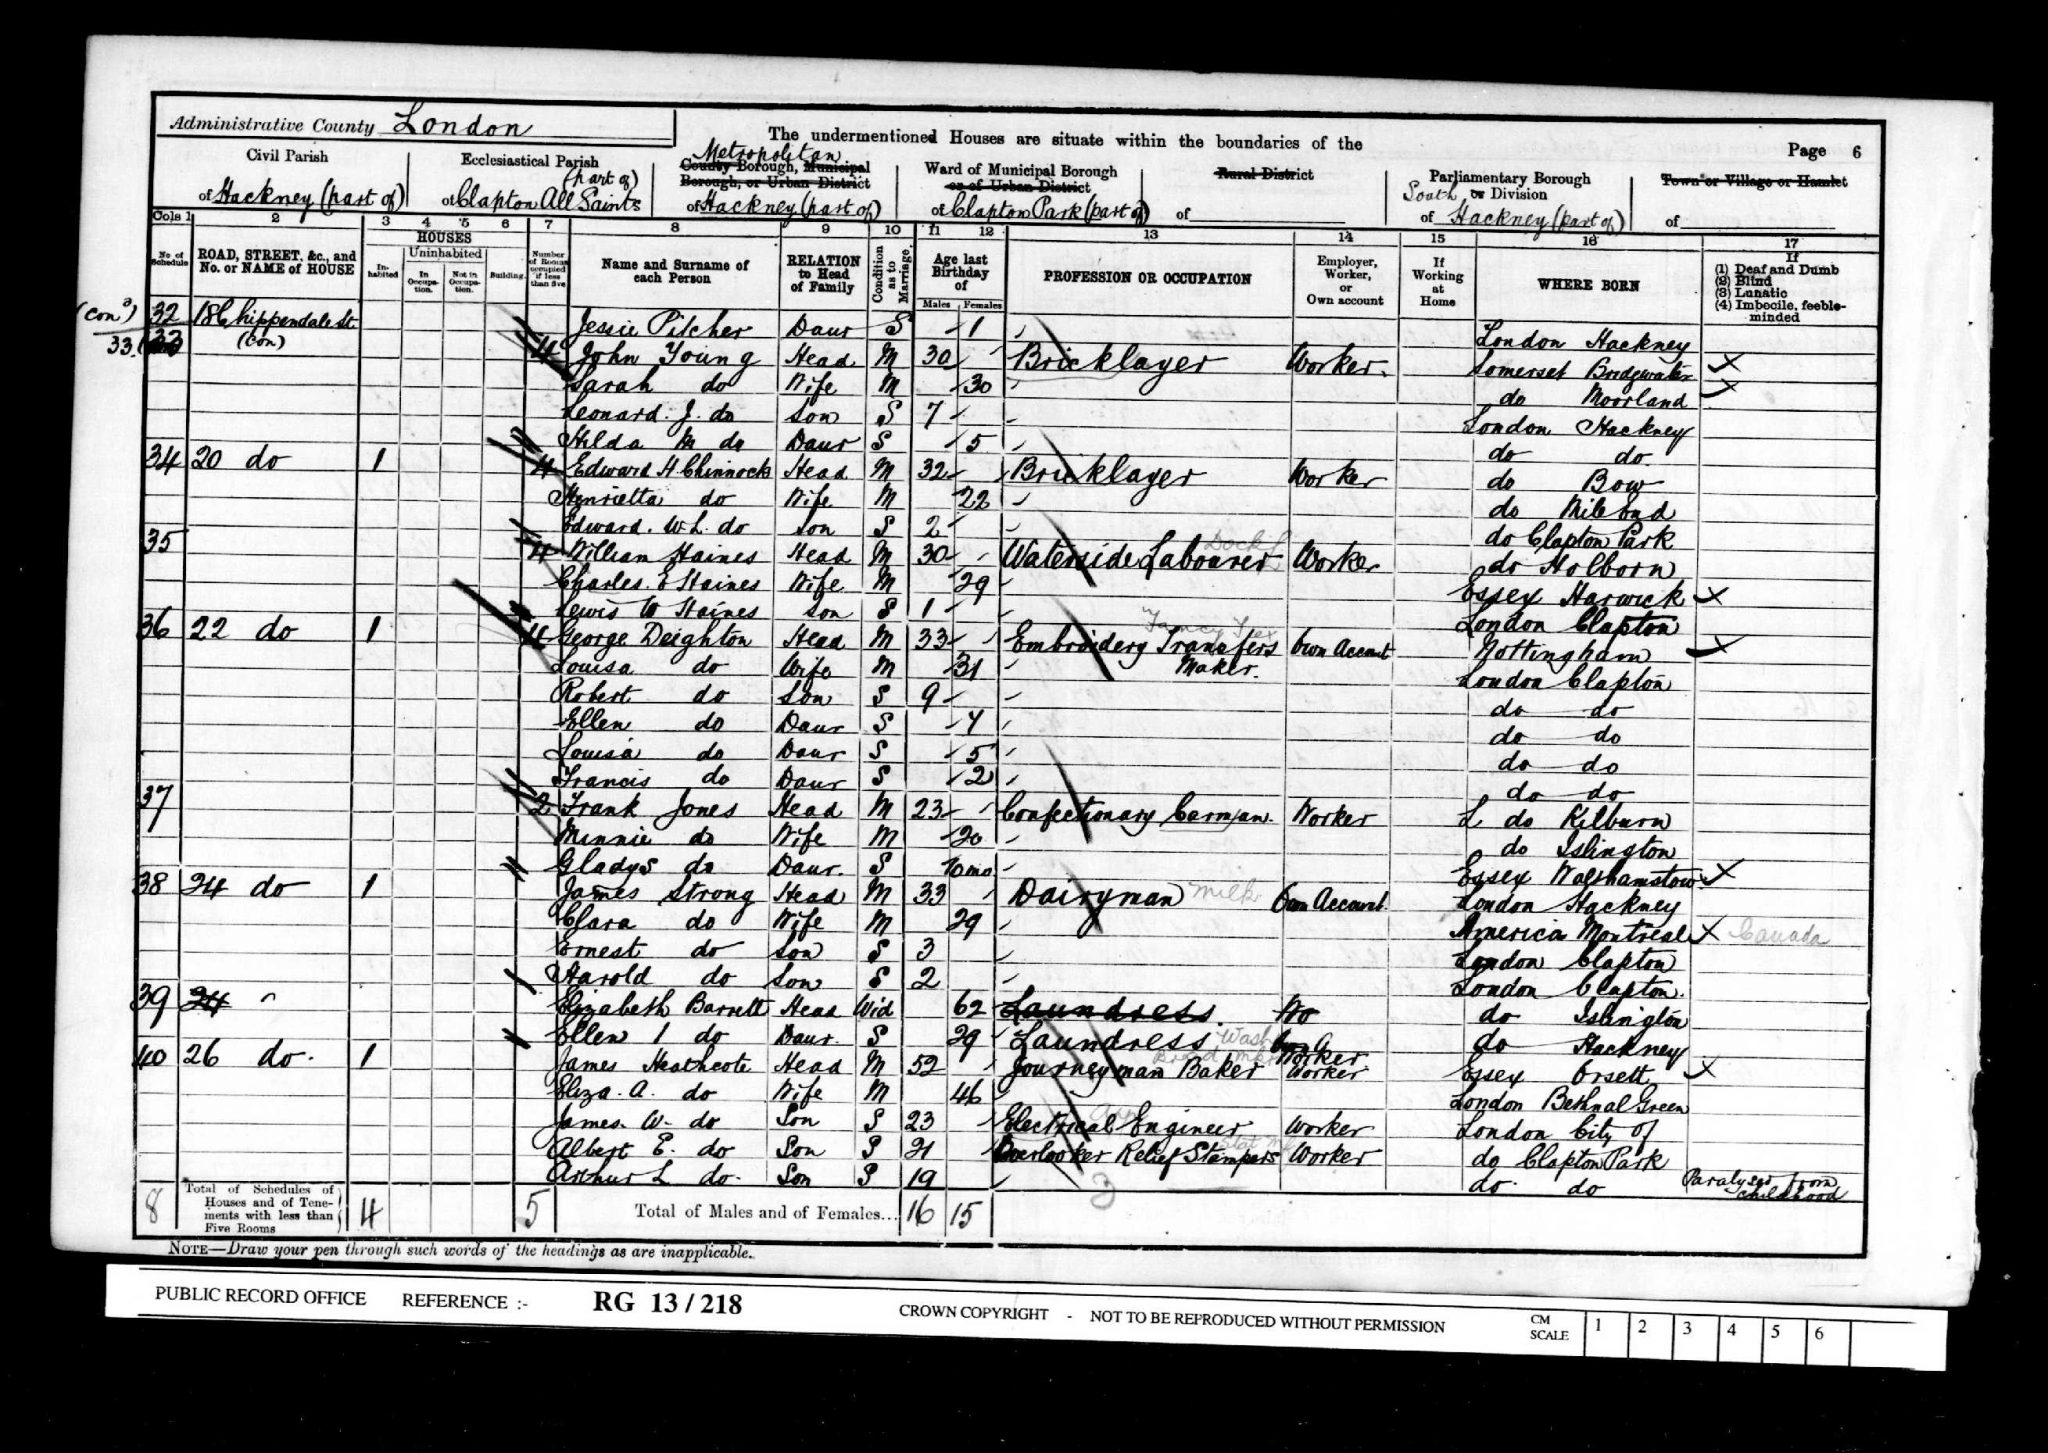 Administrative County London
The undermentioned Houses are situate within the boundaries of the
Page 6
Civil Parish
of Hackney (part of)
Ecclesiastical Parish
(part of)
of Clapton All Saints
Metropolitan
County Borough, Municipal
Borough, or Urban District
of Hackney (part of)
Ward of Municipal Borough
or of Urban District
of Clapton Park (part of)
Rural District
of
Parliamentary Borough
South or Division
of Hackney (part of)
Town or Village or Hamlet
of
Cols 1 2 3 4 5 6 7 8 9 10 11 12 13 14 15 16 17
No of Schedule
ROAD, STREET, &c., and No. or NAME of HOUSE
HOUSES
Inhabited
Uninhabited
In Occupation.
Not in Occupation.
Building.
Number of Rooms occupied if less than five
Name and Surname of each Person
RELATION to Head of Family
Condition as to Marriage
Age last Birthday of
Males Females
PROFESSION OR OCCUPATION
Employer, Worker, or Own account
If Working at Home
WHERE BORN
If
(1) Deaf and Dumb
(2) Blind
(3) Lunatic
(4) Imbecile, feeble-minded
(Con) 32 18 Chippendale St. (Con) Jessie Pilcher Daur S 1 London Hackney
33 4 John Young Head M 30 Bricklayer Worker Somerset Bridgwater
Sarah do Wife M 30 do Moorland
Leonard J. do Son S 7 London Hackney
Hilda M do Daur S 5 do do
34 20 do 1 4 Edward H Chinnock Head M 32 Bricklayer Worker do Bow
Henrietta do Wife M 22 do Mile End
Edward. W L. do Son S 2 do Clapton Park
35 4 William Haines Head M 30 Waterside Labourer Dock L Worker do Holborn
Charles. E Haines Wife M 29 Essex Harwick
Lewis W Haines Son S 1 London Clapton
36 22 do 1 4 George Deighton Head M 33 Embroidery Transfers Maker. Own Account Nottingham
Louisa do Wife M 31 London Clapton
Robert do Son S 9 do do
Ellen do Daur S 7 do do
Louisa do Daur S 5 do do
Francis do Daur S 2 do do
37 2 Frank Jones Head M 23 Confectionary Carman Worker L do Kilburn
Minnie do Wife M 20 do Islington
Gladys do Daur. S 10 mo Essex Walthamstow
38 24 do 1 James Strong Head M 33 Dairyman Milk Own Account London Hackney
Clara do Wife M 29 America Montreal Canada
Ernest do Son S 3 London Clapton
Harold do Son S 2 London Clapton.
39 24 Elizabeth Barrett Head Wid 62 Laundress. Wo do Islington
Ellen I do Daur. S 29 Laundress Wash Worker do Hackney
40 26 do. 1 James Heathcote Head M 52 Journeyman Baker Worker Essex Orsett
Eliza. A. do Wife M 46 London Bethnal Green
James. W. do Son S 23 Electrical Engineer Worker London City of
Albert E. do Son S 21 Overlooker Relief Stampers Worker do Clapton Park
Arthur L do. Son S 19 do. do Paralysed from childhood
8 Total of Schedules of
Houses and of Tenements with less than
Five Rooms
4 5 Total of Males and of Females... 16 15
NOTE—Draw your pen through such words of the headings as are inapplicable.
PUBLIC RECORD OFFICE REFERENCE :- RG 13 / 218 CROWN COPYRIGHT - NOT TO BE REPRODUCED WITHOUT PERMISSION CM SCALE 1 2 3 4 5 6